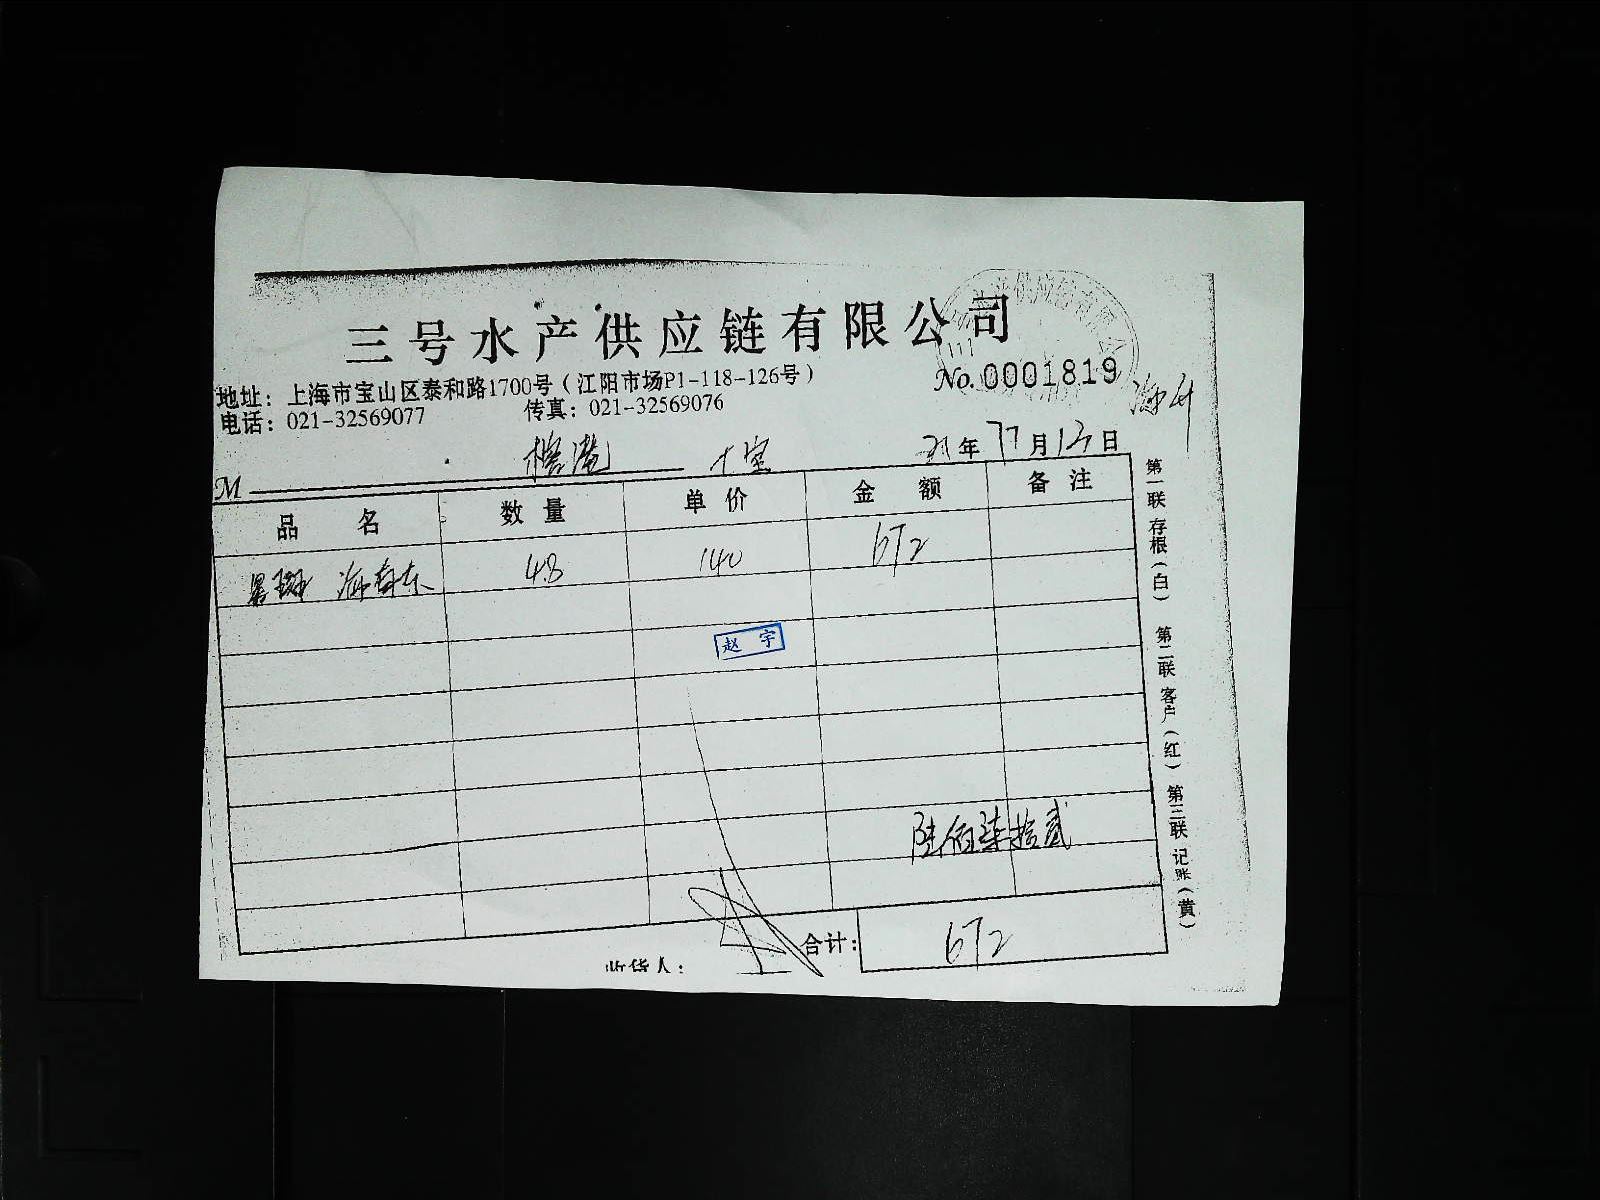 三号水产供应链有限公司
地址：上海市宝山区泰和路1700号（江阳市场P1-118-126号）
No.0001819
电话：021-32569077 传真：021-32569076
年 月13日
M
品名 数量 单价 金额 备注
48 140 672
赵宇
陆佰柒拾贰
合计：672
收货人：
第一联存根（白） 第二联客户（红） 第三联记账（黄）